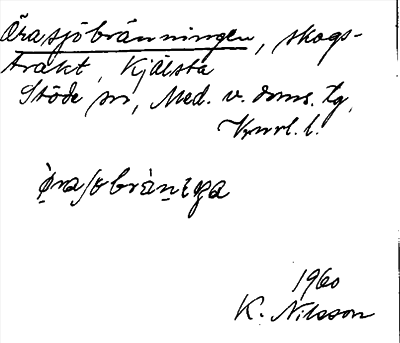 Örasjöbränningen, skogs-
trakt, Kjälsta
Stöde sn, Med. v. doms. tg,
Vnrl. l.
ø̣raʃøbràṇiŋa
1960
K. Nilsson